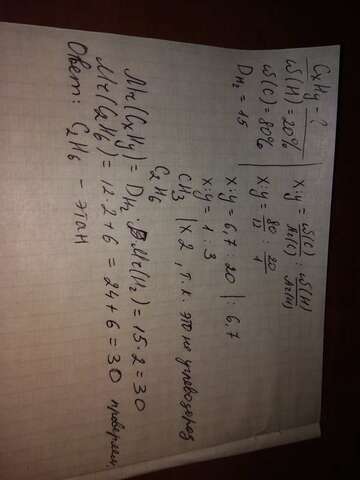 CxHy - ?
ω(H) = 20%
ω(C) = 80%
D H₂ = 15
x:y = ω(C)/Ar(C) : ω(H)/Ar(H)
x:y = 80/12 : 20/1
x:y = 6,7 : 20 | : 6,7
x:y = 1 : 3
CH₃ | x 2, т.к. это не углеводород
C₂H₆
Mr(CxHy) = DH₂ · Mr(H₂) = 15 · 2 = 30
Mr(C₂H₆) = 12 · 2 + 6 = 24 + 6 = 30 проверяем.
Ответ: C₂H₆ - этан